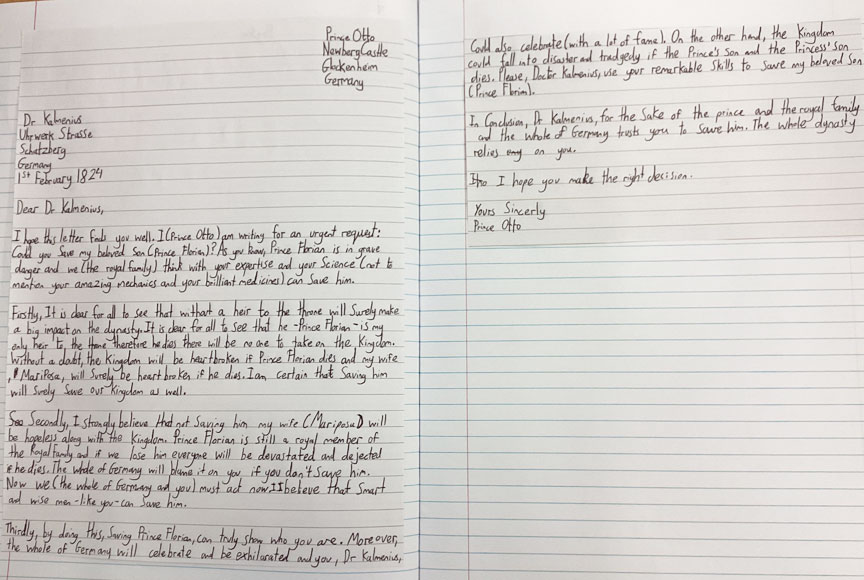 Prince Otto
Newberg Castle
Glockenheim
Germany
Dr Kalmenius
Uhrwerk Strasse
Schatzberg
Germany
1st February 1824
Dear Dr Kalmenius,
I hope this letter finds you well. I (Prince Otto) am writing for an urgent request:
Could you save my beloved Son (Prince Florian)? As you know, Prince Florian is in grave
danger and we (the royal family) think with your expertise and your Science (not to
mention your amazing mechanics and your brilliant medicines) can save him.
Firstly, It is clear for all to see that without a heir to the throne will Surely make
a big impact on the dynasty. It is clear for all to see that he - Prince Florian - is my
only heir to the throne therefore he dies there will be no one to take on the Kingdom.
Without a doubt, the Kingdom will be heartbroken if Prince Florian dies and my wife
, Mariposa, will surely be heartbroken if he dies. I am certain that saving him
will surely save our Kingdom as well.
Secondly, I strongly believe that not saving him my wife (Mariposa) will
be hopeless along with the Kingdom. Prince Florian is still a royal member of
the Royal family and if we lose him everyone will be devastated and dejected
if he dies. The whole of Germany will blame it on you if you don't save him.
Now we (the whole of Germany and you) must act now. I believe that Smart
and wise men - like you - can save him.
Thirdly, by doing this, saving Prince Florian, can truly show who you are. Moreover,
the whole of Germany will celebrate and be exhilarated and you, Dr Kalmenius,
Could also celebrate (with a lot of fame). On the other hand, the Kingdom
could fall into disaster and tradgedy if the Prince's son and the Princess' son
dies. Please, Doctor Kalmenius, use your remarkable skills to save my beloved Son
(Prince Florian).
In Conclusion, Dr Kalmenius, for the sake of the prince and the royal family
and the whole of Germany trusts you to save him. The whole dynasty
relies on you.
I hope you make the right decision.
Yours Sincerly
Prince Otto